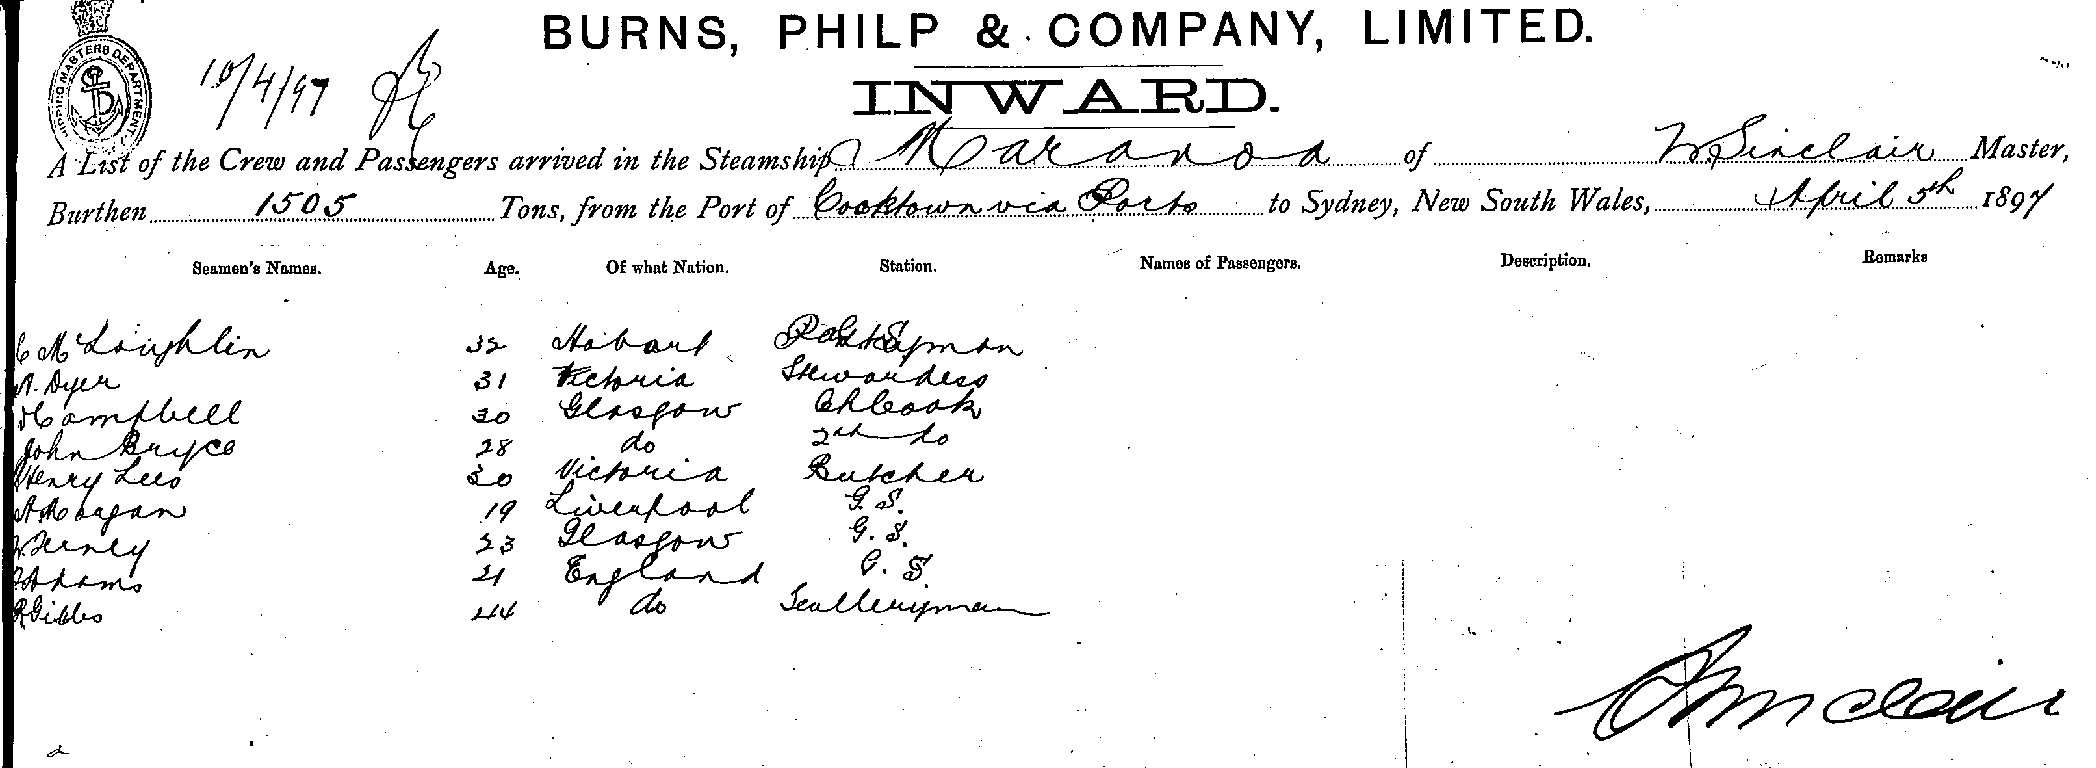 BURNS, PHILP & COMPANY, LIMITED.
INWARD.
SHIPPING MASTERS DEPARTMENT.
10/4/97
A List of the Crew and Passengers arrived in the Steamship Maranoa of W Sinclair Master,
Burthen 1505 Tons, from the Port of Cooktown via Ports to Sydney, New South Wales, April 5th 1897
Seamen's Names. Age. Of what Nation. Station. Names of Passengers. Description. Remarks
C McLoughlin 32 Hobart
A. Dyer 31 Victoria Stewardess
Campbell 30 Glasgow Ch Cook
John Bryce 28 do 2nd do
Henry Lees 30 Victoria Butcher
19 Liverpool G. S.
23 Glasgow G. S.
21 England G. S.
R Gibbs 44 do Sculleryman
Sinclair